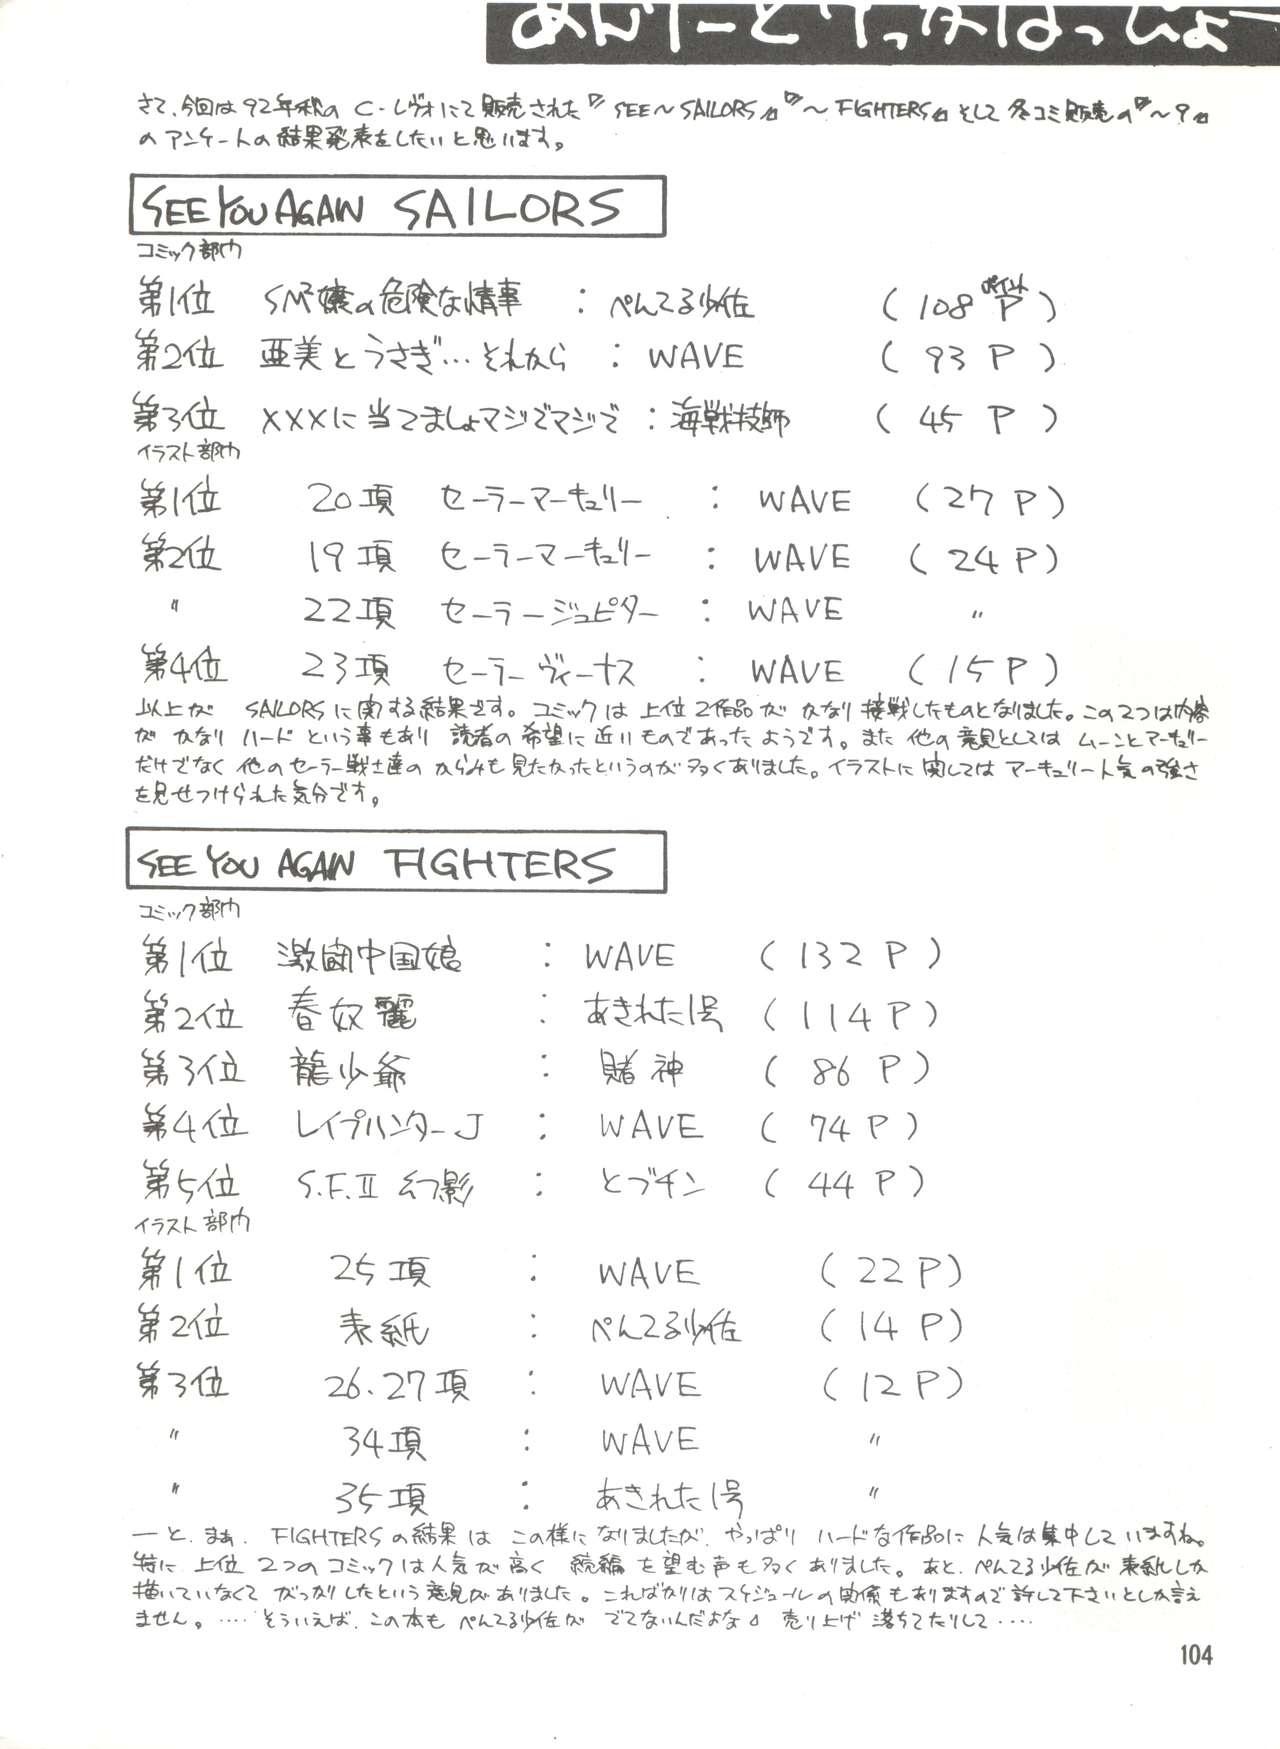 あんけーとけっかはっぴょー
さて、今回は92年秋の C-レヴォにて販売された『SEE～SAILORS』『～FIGHTERS』そして冬コミ販売の『～9』
のアンケートの結果発表をしたいと思います。
SEE YOU AGAIN SAILORS
コミック部門
第1位 SM嬢の危険な情事 : ぺんてる少佐 (108 Pポイント)
第2位 亜美とうさぎ…それから : WAVE (93 P)
第3位 XXXに当てましょマジでマジで : 海戦技師 (45 P)
イラスト部門
第1位 20項 セーラーマーキュリー : WAVE (27 P)
第2位 19項 セーラーマーキュリー : WAVE (24 P)
〃 22項 セーラージュピター : WAVE 〃
第4位 23項 セーラーヴィーナス : WAVE (15 P)
以上が SAILORSに関する結果です。コミックは上位2作品がかなり接戦したものとなりました。この2つは内容
がかなりハードという事もあり読者の希望に近いものであったようです。また他の意見としてはムーンとマーキュリー
だけでなく他のセーラー戦士達のからみも見たかったというのが多くありました。イラストに関してはマーキュリー人気の強さ
を見せつけられた気分です。
SEE YOU AGAIN FIGHTERS
コミック部門
第1位 激闘中国娘 : WAVE (132 P)
第2位 春奴麗 : あきれた1号 (114 P)
第3位 龍少爺 : 賭神 (86 P)
第4位 レイプハンターJ : WAVE (74 P)
第5位 S.F.II 幻影 : とブチン (44 P)
イラスト部門
第1位 25項 : WAVE (22 P)
第2位 表紙 : ぺんてる少佐 (14 P)
第3位 26.27項 : WAVE (12 P)
〃 34項 : WAVE 〃
〃 35項 : あきれた1号 〃
―と、まぁ、FIGHTERSの結果はこの様になりましたが、やっぱりハードな作品に人気は集中していますね。
特に上位2つのコミックは人気が高く続編を望む声も多くありました。あと、ぺんてる少佐が表紙しか
描いていなくてがっかりしたという意見がありました。こればかりはスケジュールの関係もありますので許して下さいとしか言え
ません。‥‥そういえば、この本もぺんてる少佐がでてないんだよな。売り上げ落ちてたりして‥‥
104